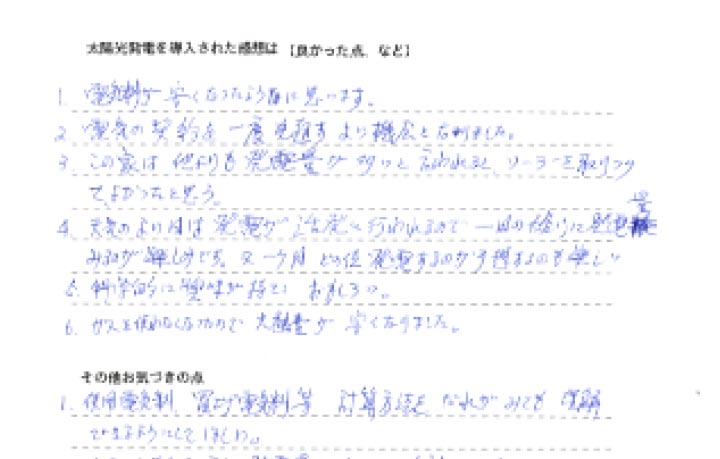 太陽光発電を導入された感想は （良かった点、など）
1. 電気料が安くなったように思います。
2. 電気の契約を一度見直すよい機会となりました。
3. この家は他よりも発電量が多いと言われると、ソーラーを取りつけ
てよかったと思う。
4. 天気のよい日は発電が活発に行われるので一日の終りに発電量
みるのが楽しみです。又一ヶ月どの位発電するのか予想するのも楽しい
5. 科学的に興味が持て、おもしろい。
6. ガスを使わなくなったので が安くなりました。
その他お気づきの点
1. 使用電気料 買上げ電気料等 計算方法を だれがみても 理解
できるようにしてほしい。